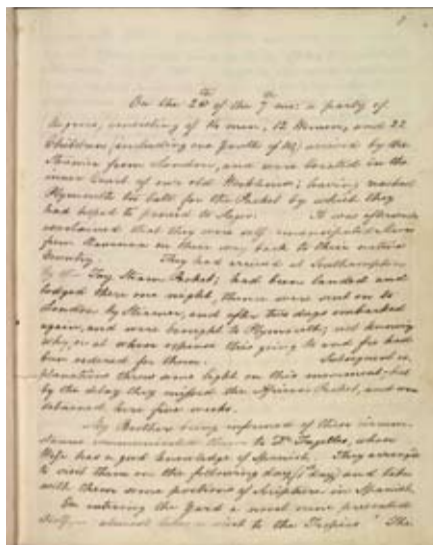 On the 2nd of the 9 mo: a party of
Negroes, consisting of 14 men, 12 Women, and 22
Children (including one Youth of 14) arrived by the
Steamer from London, and were located in the
inner Court of our old Workhouse; having reached
Plymouth too late for the Packet by which they
had hoped to proceed to Lagos. It was afterwards
ascertained that they were self-emancipated slaves
from Havanna on their way back to their native
Country. They had arrived at Southampton
by the Tay Steam Packet; had been landed and
lodged there one night, thence were sent on to
London by Steamer, and after two days embarked
again, and were brought to Plymouth; not knowing
why, or at whose expense this going to and fro had
been ordered for them. Subsequent ex
planations threw some light on this movement; but
by the delay they missed the African Packet, and were
detained here five weeks.
My Brother being informed of these circum-
stances communicated them to Dr Tregelles, whose
Wife has a good knowledge of Spanish. They arranged
to visit them on the following day (1st day) and take
with them some portions of Scripture in Spanish.
On entering the Yard a novel scene presented
itself, almost like a visit to the Tropics. The